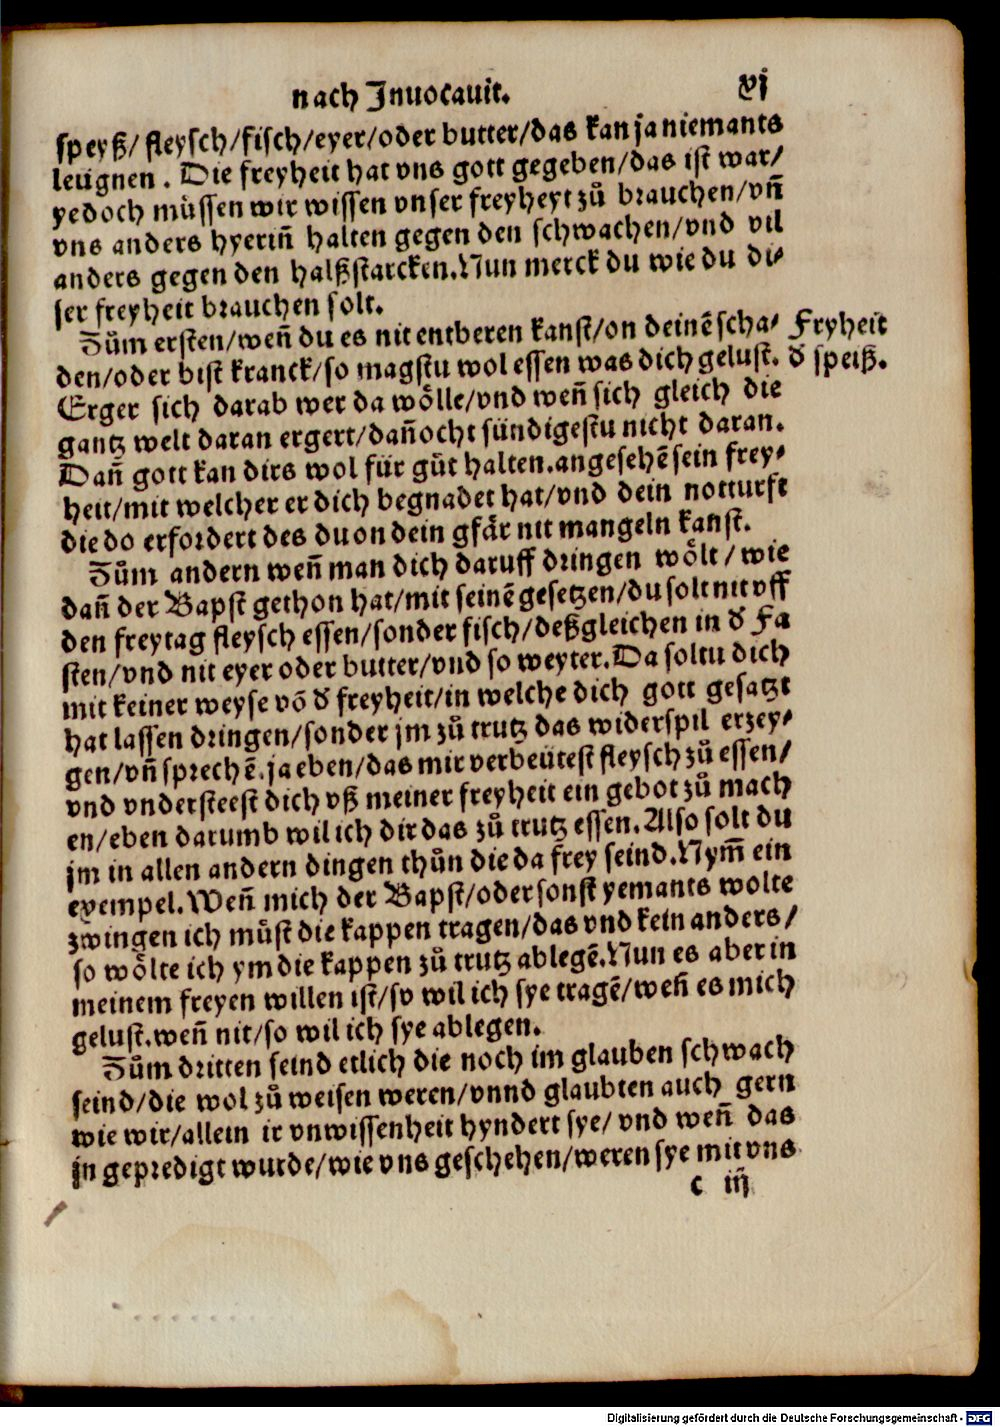 nach Inuocauit. xj
speyß/ fleysch/fisch/eyer/oder butter/das kan ja niemants
leügnen . Die freyheit hat vns gott gegeben/das ist war/
yedoch müssen wir wissen vnser freyheyt zů brauchen/vñ
vns anders hyeriñ halten gegen den schwachen/vnd vil
anders gegen den halßstarcken.Nun merck du wie du di-
ser freyheit brauchen solt.
Zům ersten/weñ du es nit entberen kanst/on deinẽ scha-
den/oder bist kranck/so magstu wol essen was dich gelust.
Fryheit
d̕ speiß.
Erger sich darab wer da wo̊lle/vnd weñ sich gleich die
gantz welt daran ergert/dañocht sündigestu nicht daran.
Dañ gott kan dirs wol für gůt halten.angesehẽ sein frey-
heit/mit welcher er dich begnadet hat/vnd dein notturft
die do erfordert des du on dein gfär nit mangeln kanst.
Zům andern weñ man dich daruff dringen wo̊lt/ wie
dañ der Bapst gethon hat/mit seinẽ gesetzen/du solt nit vff
den freytag fleysch essen/sonder fisch/deßgleichen in d̕ Fa
sten/vnd nit eyer oder butter/vnd so weyter.Da soltu dich
mit keiner weyse võ d̕ freyheit/in welche dich gott gesatzt
hat lassen dringen/sonder jm zů trutz das widerspil erzey-
gen/vñ sprechẽ.ja eben/das mir verbeütest fleysch zů essen/
vnd vndersteest dich vß meiner freyheit ein gebot zů mach
en/eben darumb wil ich dir das zů trutz essen.Also solt du
jm in allen andern dingen thůn die da frey seind.Nym̃ ein
exempel.Weñ mich der Bapst/oder sonst yemants wolte
zwingen ich můst die kappen tragen/das vnd kein anders/
so wo̊lte ich ym die kappen zů trutz ablegẽ.Nun es aber in
meinem freyen willen ist/so wil ich sye tragẽ/weñ es mich
gelust.weñ nit/so wil ich sye ablegen.
Zům dritten seind etlich die noch im glauben schwach
seind/die wol zů weisen weren/vnnd glaubten auch gern
wie wir/allein ir vnwissenheit hyndert sye/ vnd weñ das
jn gepredigt wurde/wie vns geschehen/weren sye mit vns
c iij
Digitalisierung gefördert durch die Deutsche Forschungsgemeinschaft - DFG